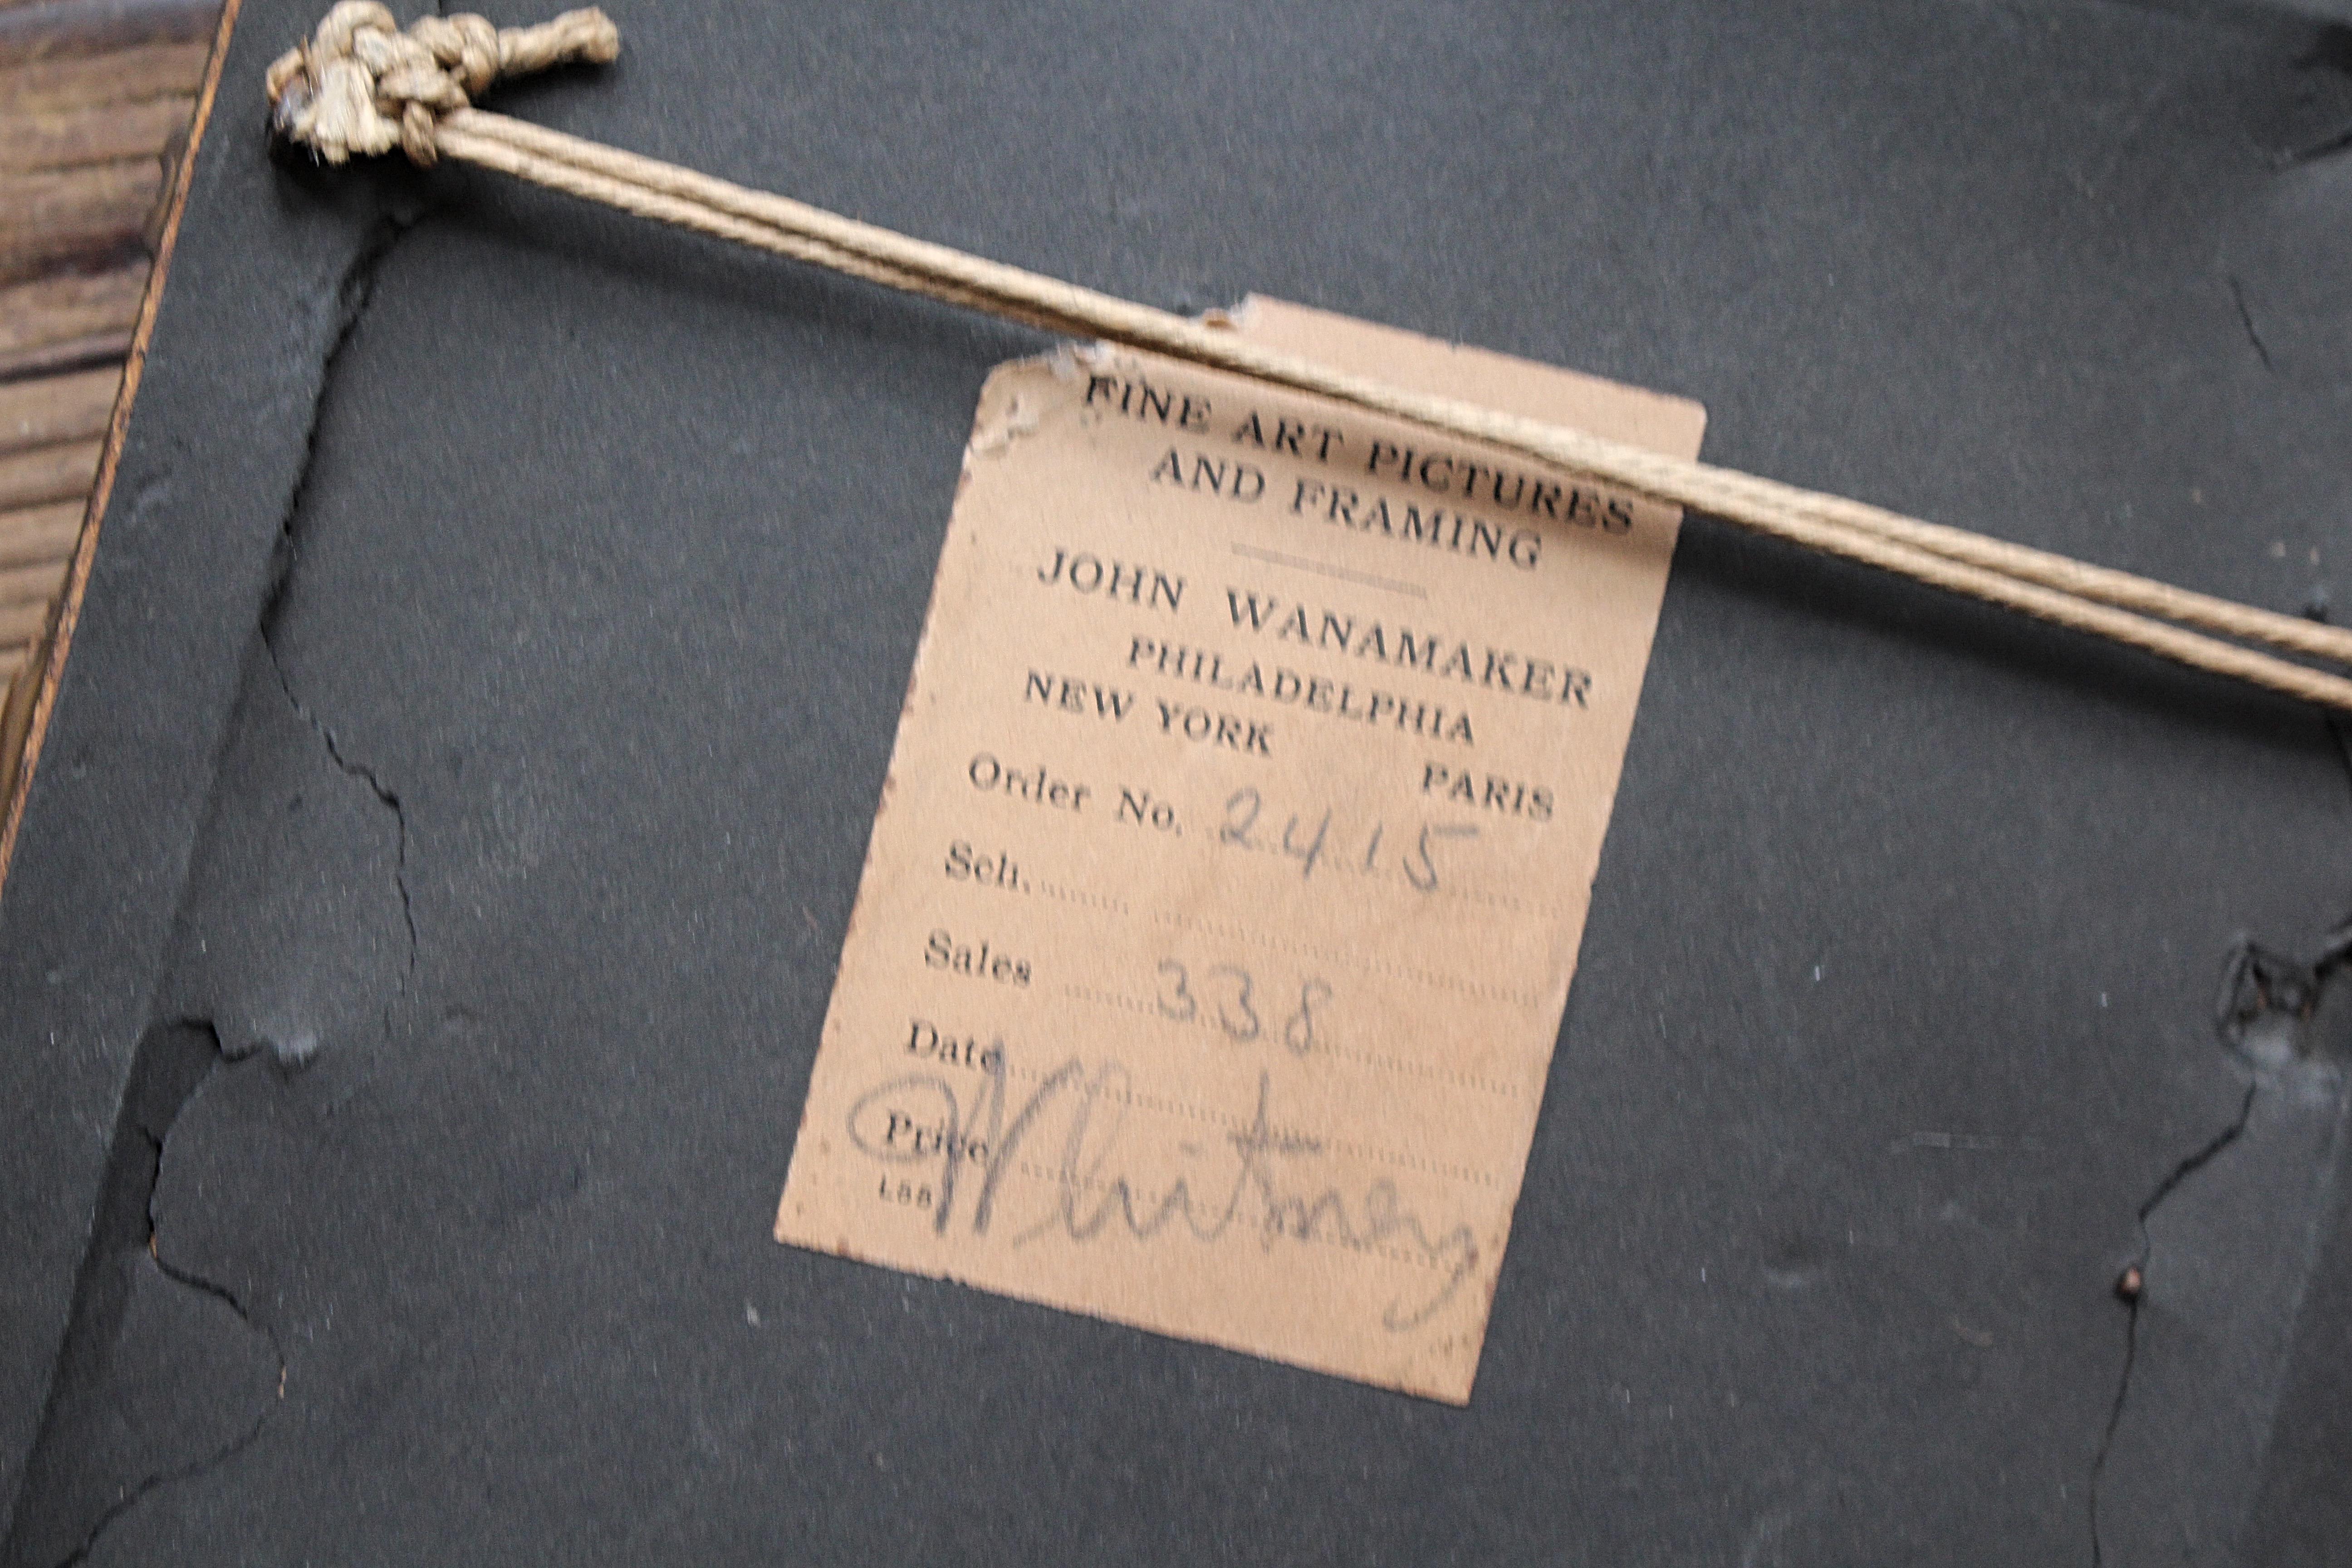 FINE ART PICTURES
AND FRAMING
JOHN WANAMAKER
PHILADELPHIA
NEW YORK PARIS
Order No. 2415
Sch.
Sales 338
Date
Price
Whitney